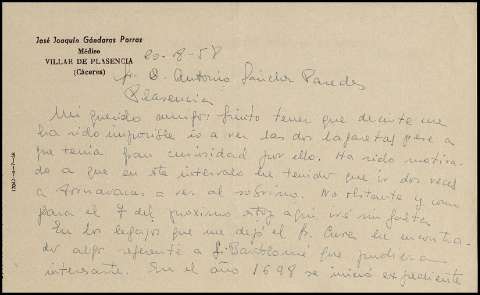 José Joaquín Gándaras Porras
Médico
VILLAR DE PLASENCIA
(Cáceres)
20-8-58
Sr. D. Antonio Sánchez Paredes
Plasencia
Mi querido amigo: Siento tener que decirte me
ha sido imposible ir a ver las dos lagaretas pese a
que tenía gran curiosidad por ello. Ha sido motiva-
do a que en este intervalo he tenido que ir dos veces
a a ver al sobrino. No obstante y como
para el 7 del próximo estoy aquí iré sin falta
En los legajos que me dejó el Sr. Cura he encontra-
do algo referente a S. Bartolomé que pudiera
interesarte. En el año 1698 se inició expediente